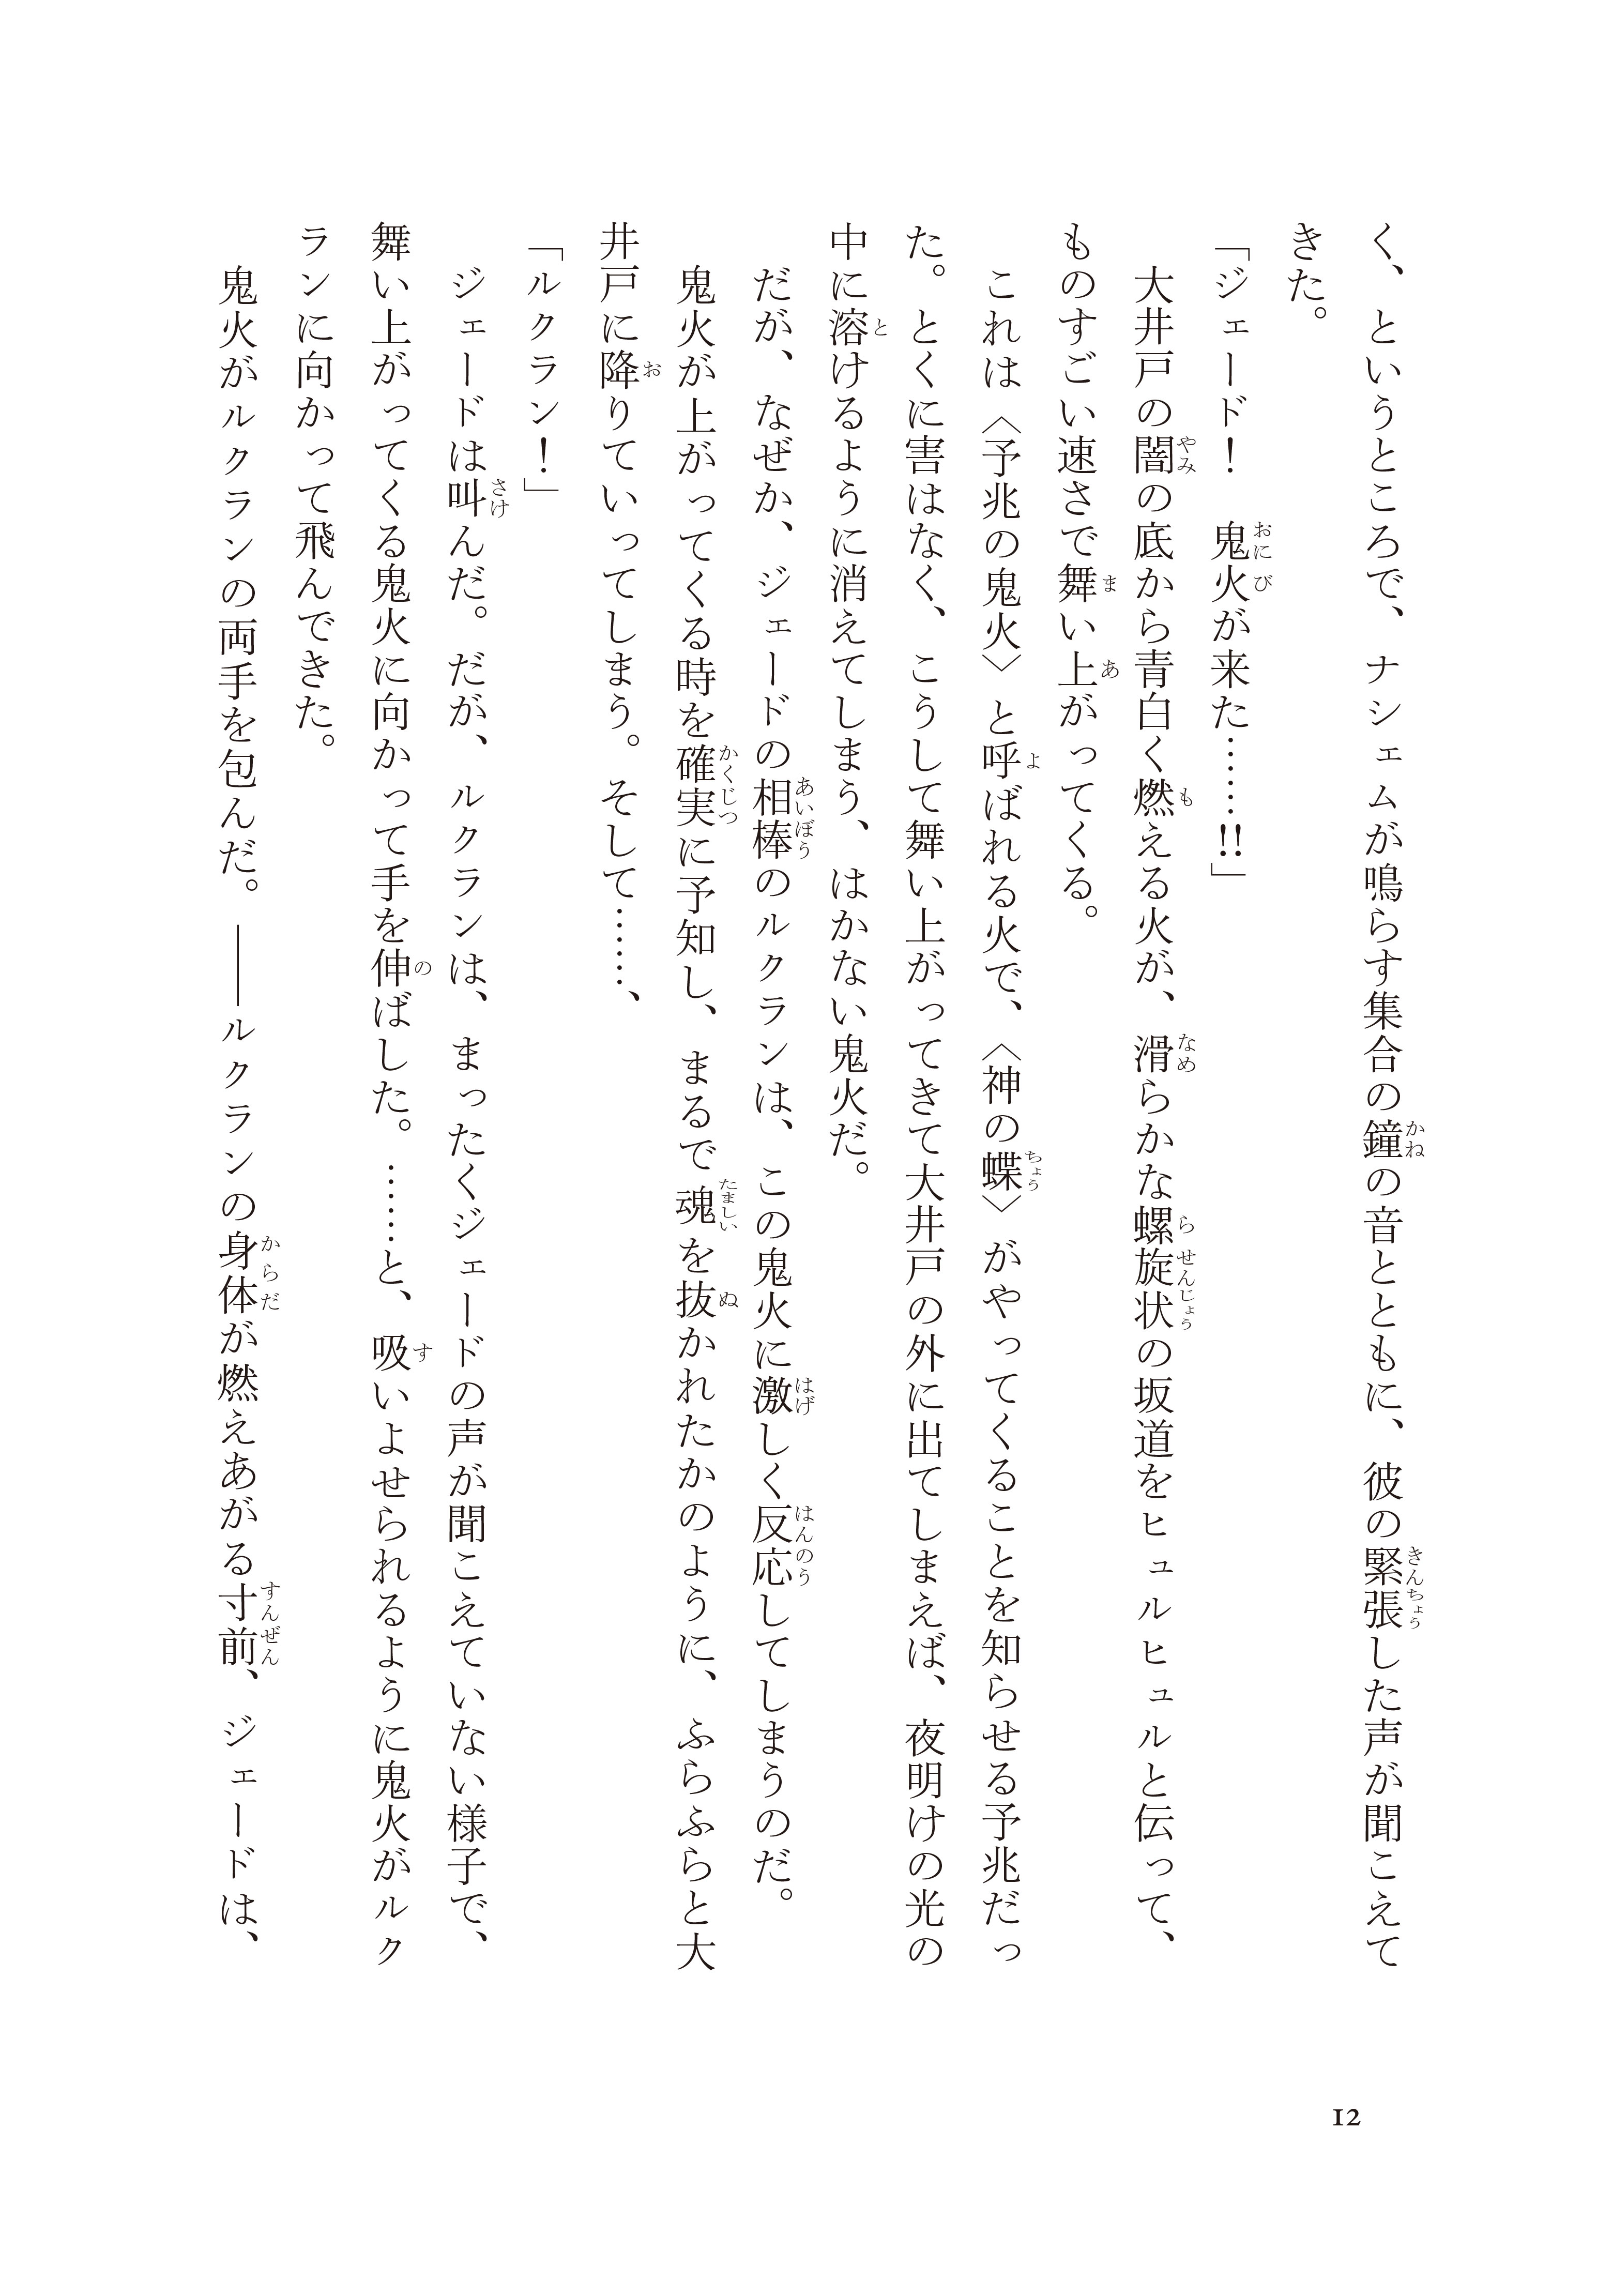 く、というところで、ナシェムが鳴らす集合の鐘の音とともに、彼の緊張した声が聞こえて
きた。
「ジェード！　鬼火が来た……!!」
　大井戸の闇の底から青白く燃える火が、滑らかな螺旋状の坂道をヒュルヒュルと伝って、
ものすごい速さで舞い上がってくる。
　これは〈予兆の鬼火〉と呼ばれる火で、〈神の蝶〉がやってくることを知らせる予兆だっ
た。とくに害はなく、こうして舞い上がってきて大井戸の外に出てしまえば、夜明けの光の
中に溶けるように消えてしまう、はかない鬼火だ。
　だが、なぜか、ジェードの相棒のルクランは、この鬼火に激しく反応してしまうのだ。
　鬼火が上がってくる時を確実に予知し、まるで魂を抜かれたかのように、ふらふらと大
井戸に降りていってしまう。そして……、
「ルクラン！」
　ジェードは叫んだ。だが、ルクランは、まったくジェードの声が聞こえていない様子で、
舞い上がってくる鬼火に向かって手を伸ばした。……と、吸いよせられるように鬼火がルク
ランに向かって飛んできた。
　鬼火がルクランの両手を包んだ。――ルクランの身体が燃えあがる寸前、ジェードは、
12